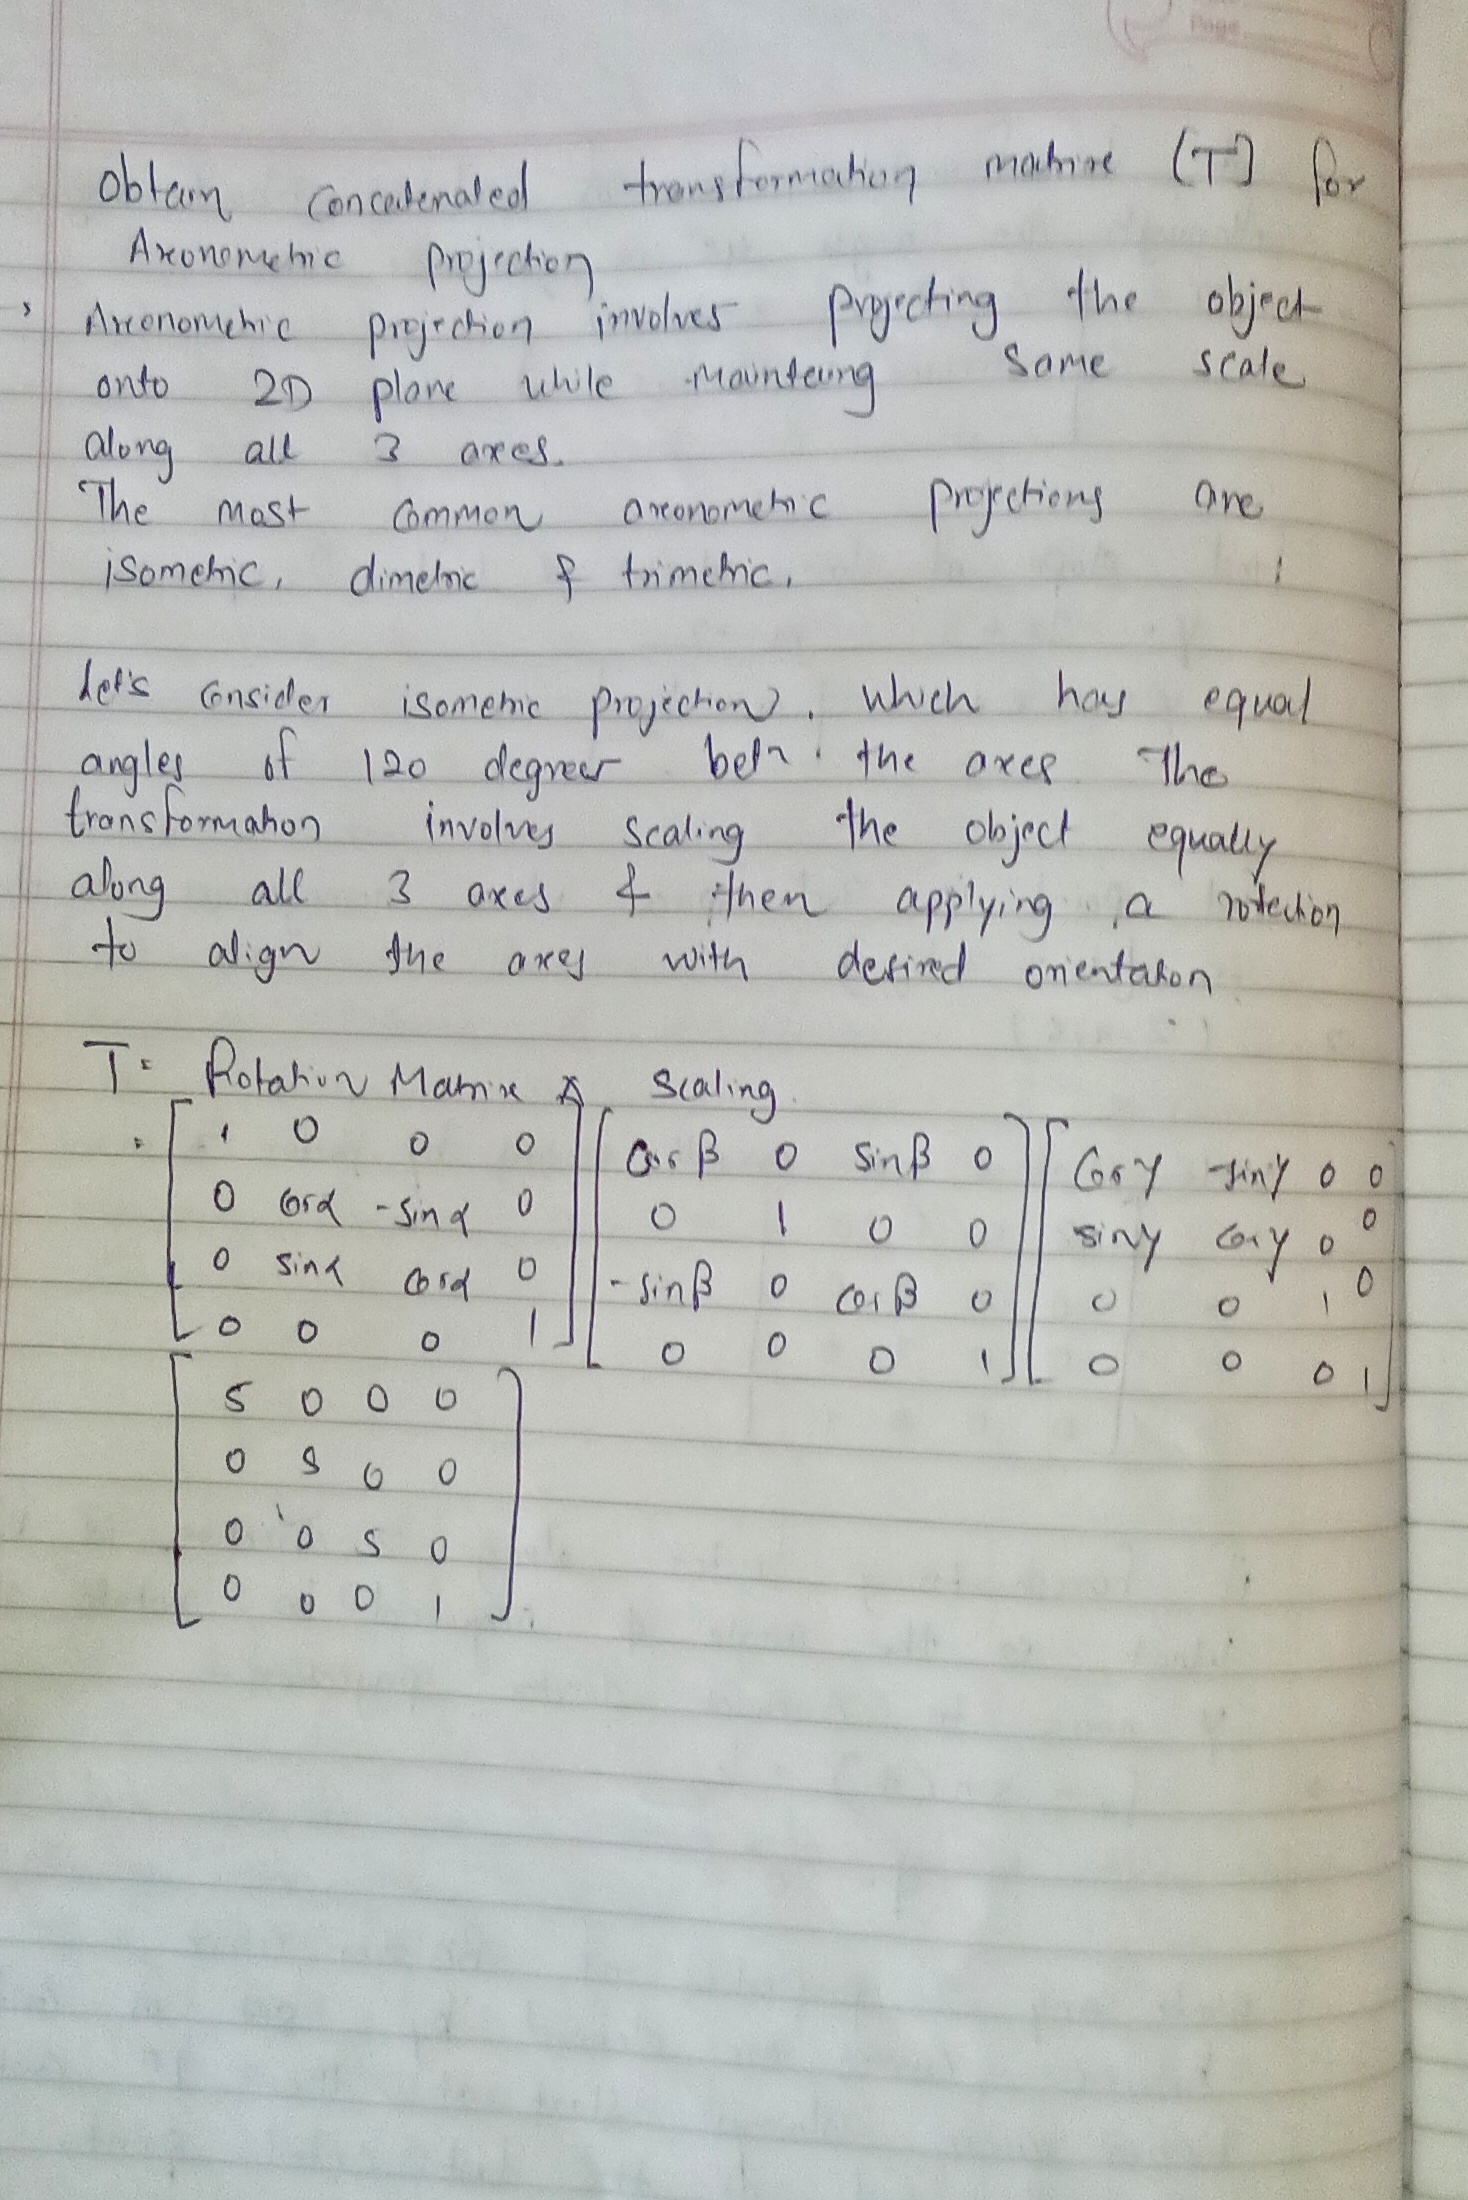 Page
Obtain concatenated transformation matrix [T] for
Axonometric projection
Axonometric projection involves projecting the object
onto 2D plane while mainteing same scale
along all 3 axes.
The most common axonometric projections are
isometric, dimetric & trimetric.
Let's consider isometric projection, which has equal
angles of 120 degrees betn. the axes The
transformation involves scaling the object equally
along all 3 axes & then applying a rotection
to align the axes with desired orientation
T = Rotation Matrix × Scaling
= [1 0 0 0] [cosβ 0 sinβ 0] [cosγ -sinγ 0 0]
[0 cosα -sinα 0] [0 1 0 0] [sinγ cosγ 0 0]
[0 sinα cosα 0] [-sinβ 0 cosβ 0] [0 0 1 0]
[0 0 0 1] [0 0 0 1] [0 0 0 1]
[S 0 0 0]
[0 S 0 0]
[0 0 S 0]
[0 0 0 1]